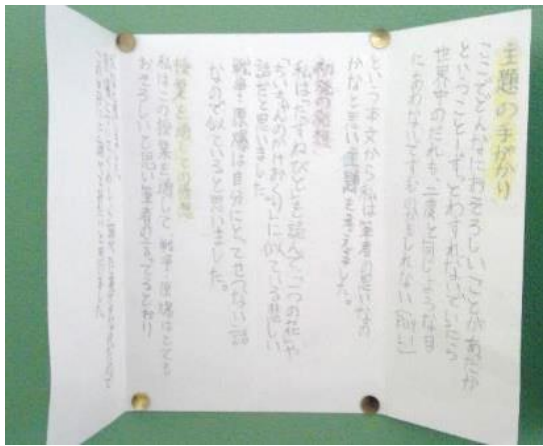 主題の手がかり
「ここでどんなにおそろしいことがあったか
ということを、ずっとわすれないでいたら
世界中のだれも、二度と同じような目
にあわないですむのかもしれない
という本文から私は筆者の思いなの
かなと思い主題を考えました。
初発の感想
私は「たずねびと」を読んで「一つの花」や
「ちいちゃんのかげおくり」に似ている悲しい
話だと思いました。
戦争・原爆は自分にとってせつない話
なので似ていると思いました。
授業を通しての感想
私はこの授業を通して戦争・原爆はとても
おそろしいと思い筆者の言ってるとおり